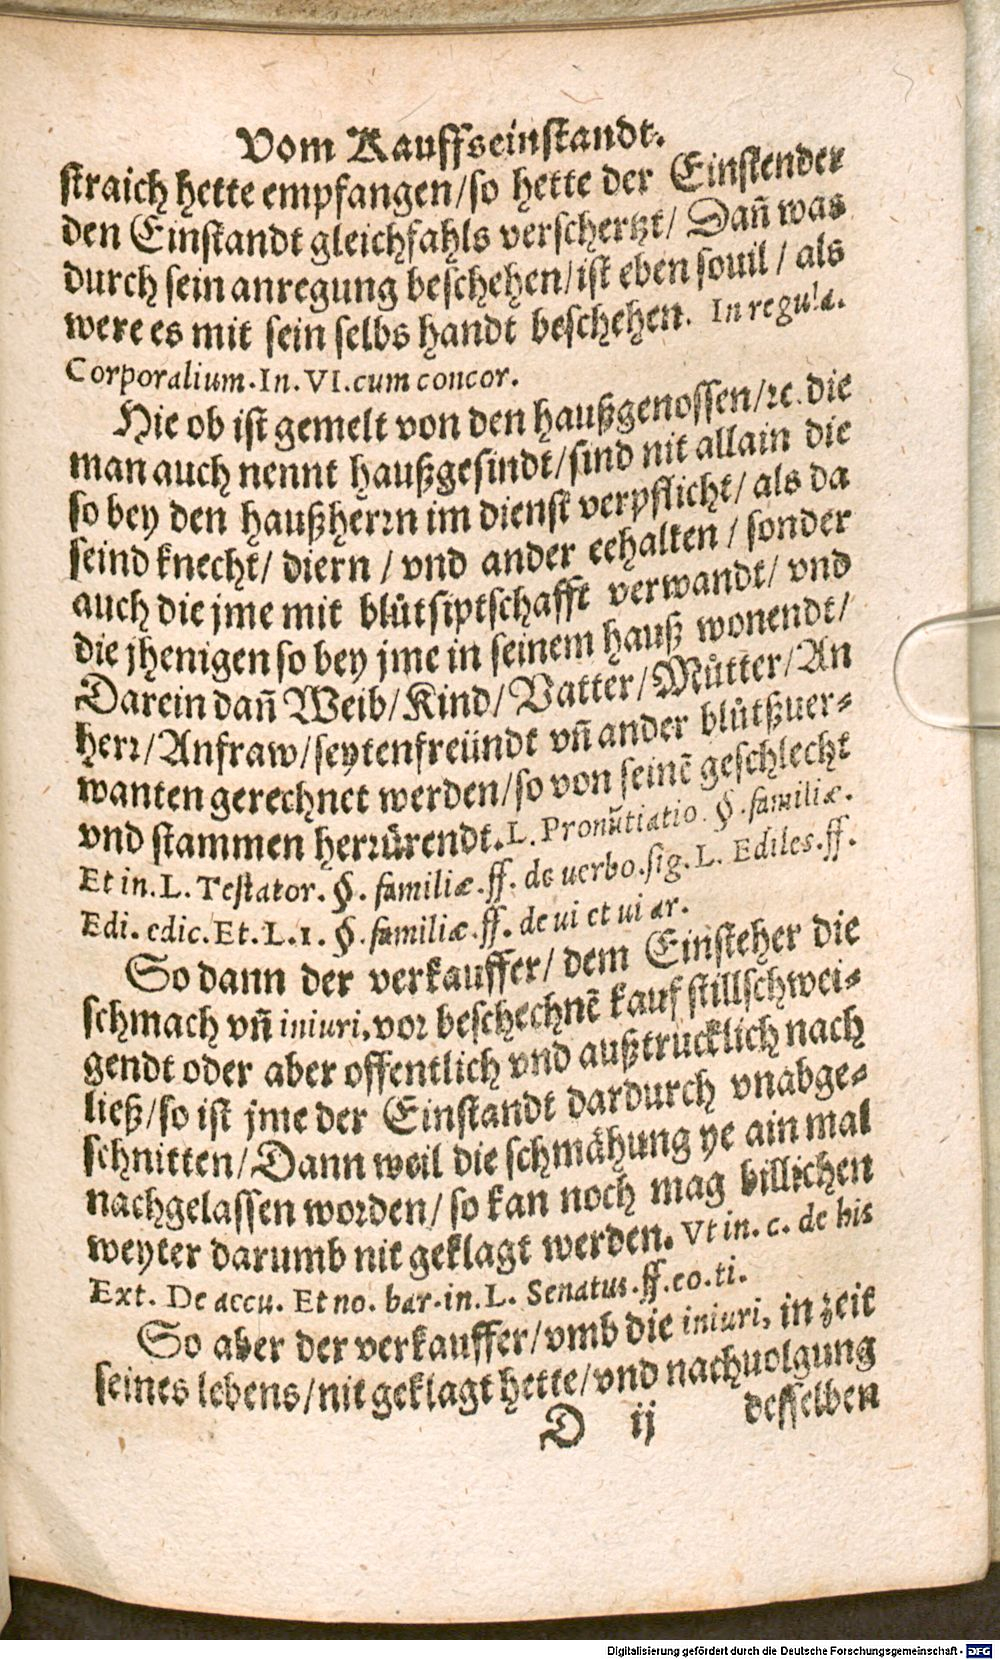 Vom Kauffseinstandt.
straich hette empfangen/so hette der Einstender
den Einstandt gleichfahls verschertzt/ Dañ was
durch sein anregung beschehen/ist eben souil / als
were es mit sein selbs handt beschehen. In regula.
Corporalium.In.VI.cum concor.
Hie ob ist gemelt von den haußgenossen/ꝛc. die
man auch nennt haußgesindt/sind nit allain die
so bey den haußherrn im dienst verpflicht/ als da
seind knecht/ diern / vnd ander eehalten / sonder
auch die jme mit blůtsiptschafft verwandt/ vnd
die jhenigen so bey jme in seinem hauß wonendt/
Darein dañ Weib/Kind/Vatter/Můtter/An
herr/Anfraw/seytenfreündt vñ ander blůtßuer-
wanten gerechnet werden/so von seinē geschlecht
vnd stammen herrürendt. L. Pronūtiatio. §. familiæ.
Et in. L. Testator. §. familiæ. ff. de uerbo. sig. L. Ediles. ff.
Edi. edic. Et. L. 1. §. familiæ. ff. de ui et ui ar.
So dann der verkauffer/ dem Einsteher die
schmach vñ iniuri, vor beschechnē kauf stillschwei-
gendt oder aber offentlich vnd außtrucklich nach
ließ/so ist jme der Einstandt dardurch vnabge-
schnitten/Dann weil die schmåhung ye ain mal
nachgelassen worden/ so kan noch mag billichen
weyter darumb nit geklagt werden. Vt in. c. de his
Ext. De accu. Et no. bar. in. L. Senatus. ff. eo. ti.
So aber der verkauffer/vmb die iniuri, in zeit
seines lebens/nit geklagt hette/vnd nachuolgung
D ij desselben
Digitalisierung gefördert durch die Deutsche Forschungsgemeinschaft - DFG